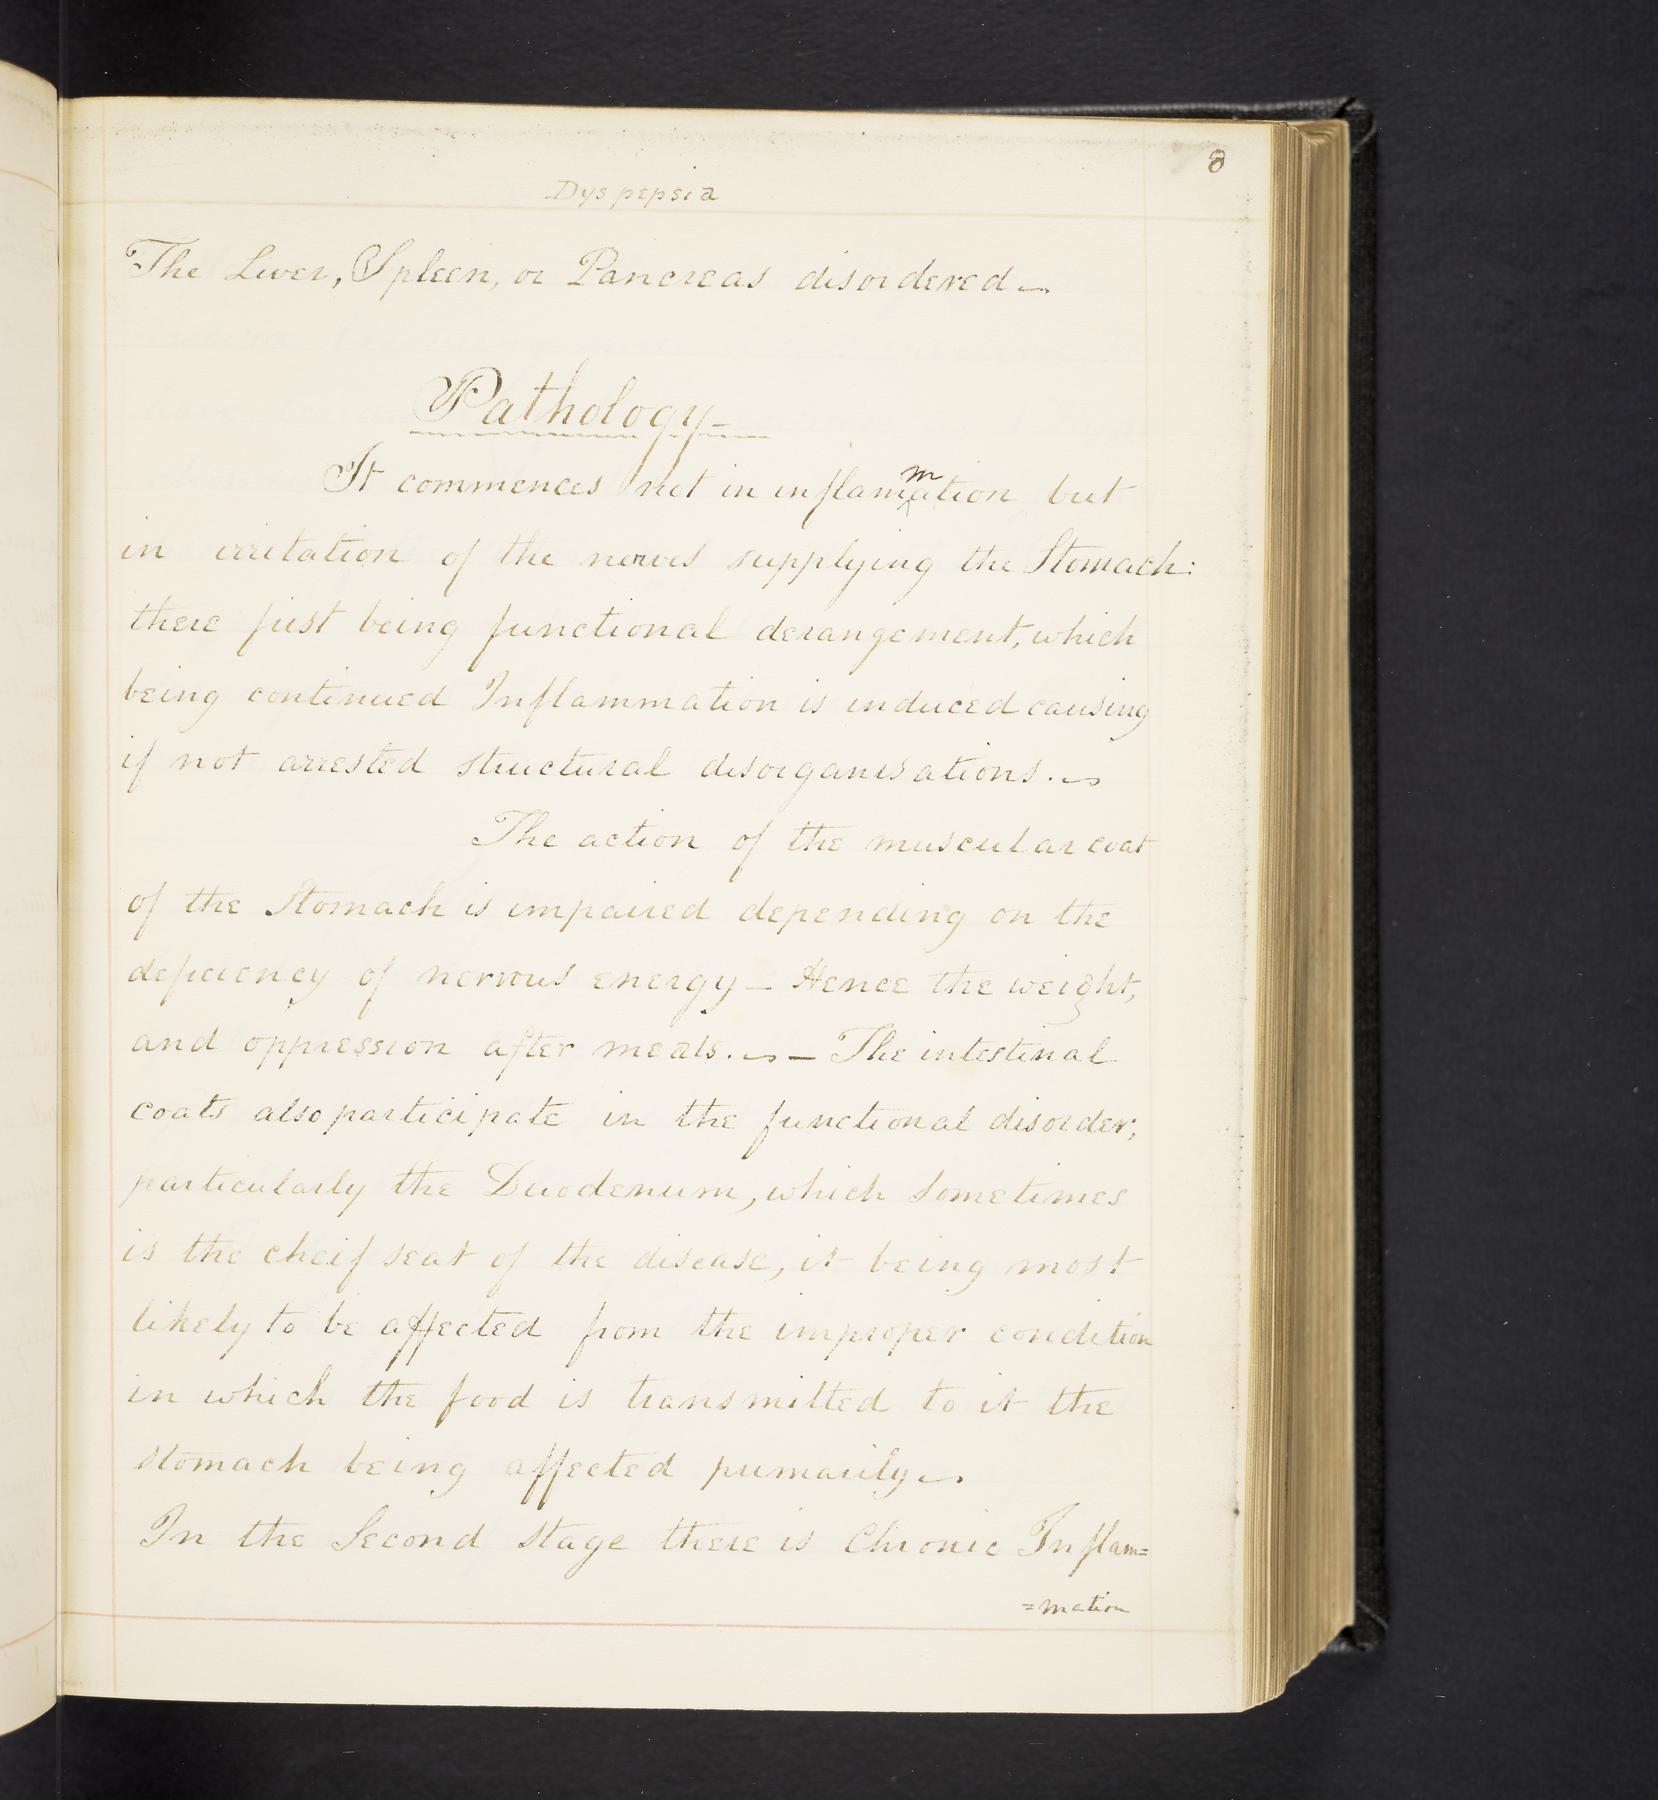 8
Dyspepsia
The Liver, Spleen, or Pancreas disordered —
Pathology —
It commences not in inflammation but
in irritation of the nerves supplying the Stomach:
there first being functional derangement, which
being continued Inflammation is induced causing
if not arrested structural disorganisations. —
The action of the muscular coat
of the Stomach is impaired depending on the
deficiency of nervous energy — Hence the weight,
and oppression after meals. — — The intestinal
coats also participate in the functional disorder;
particularly the Duodenum, which sometimes
is the cheif seat of the disease, it being most
likely to be affected from the improper condition
in which the food is transmitted to it the
stomach being affected primarily —
In the Second Stage there is Chronic Inflam=
=mation